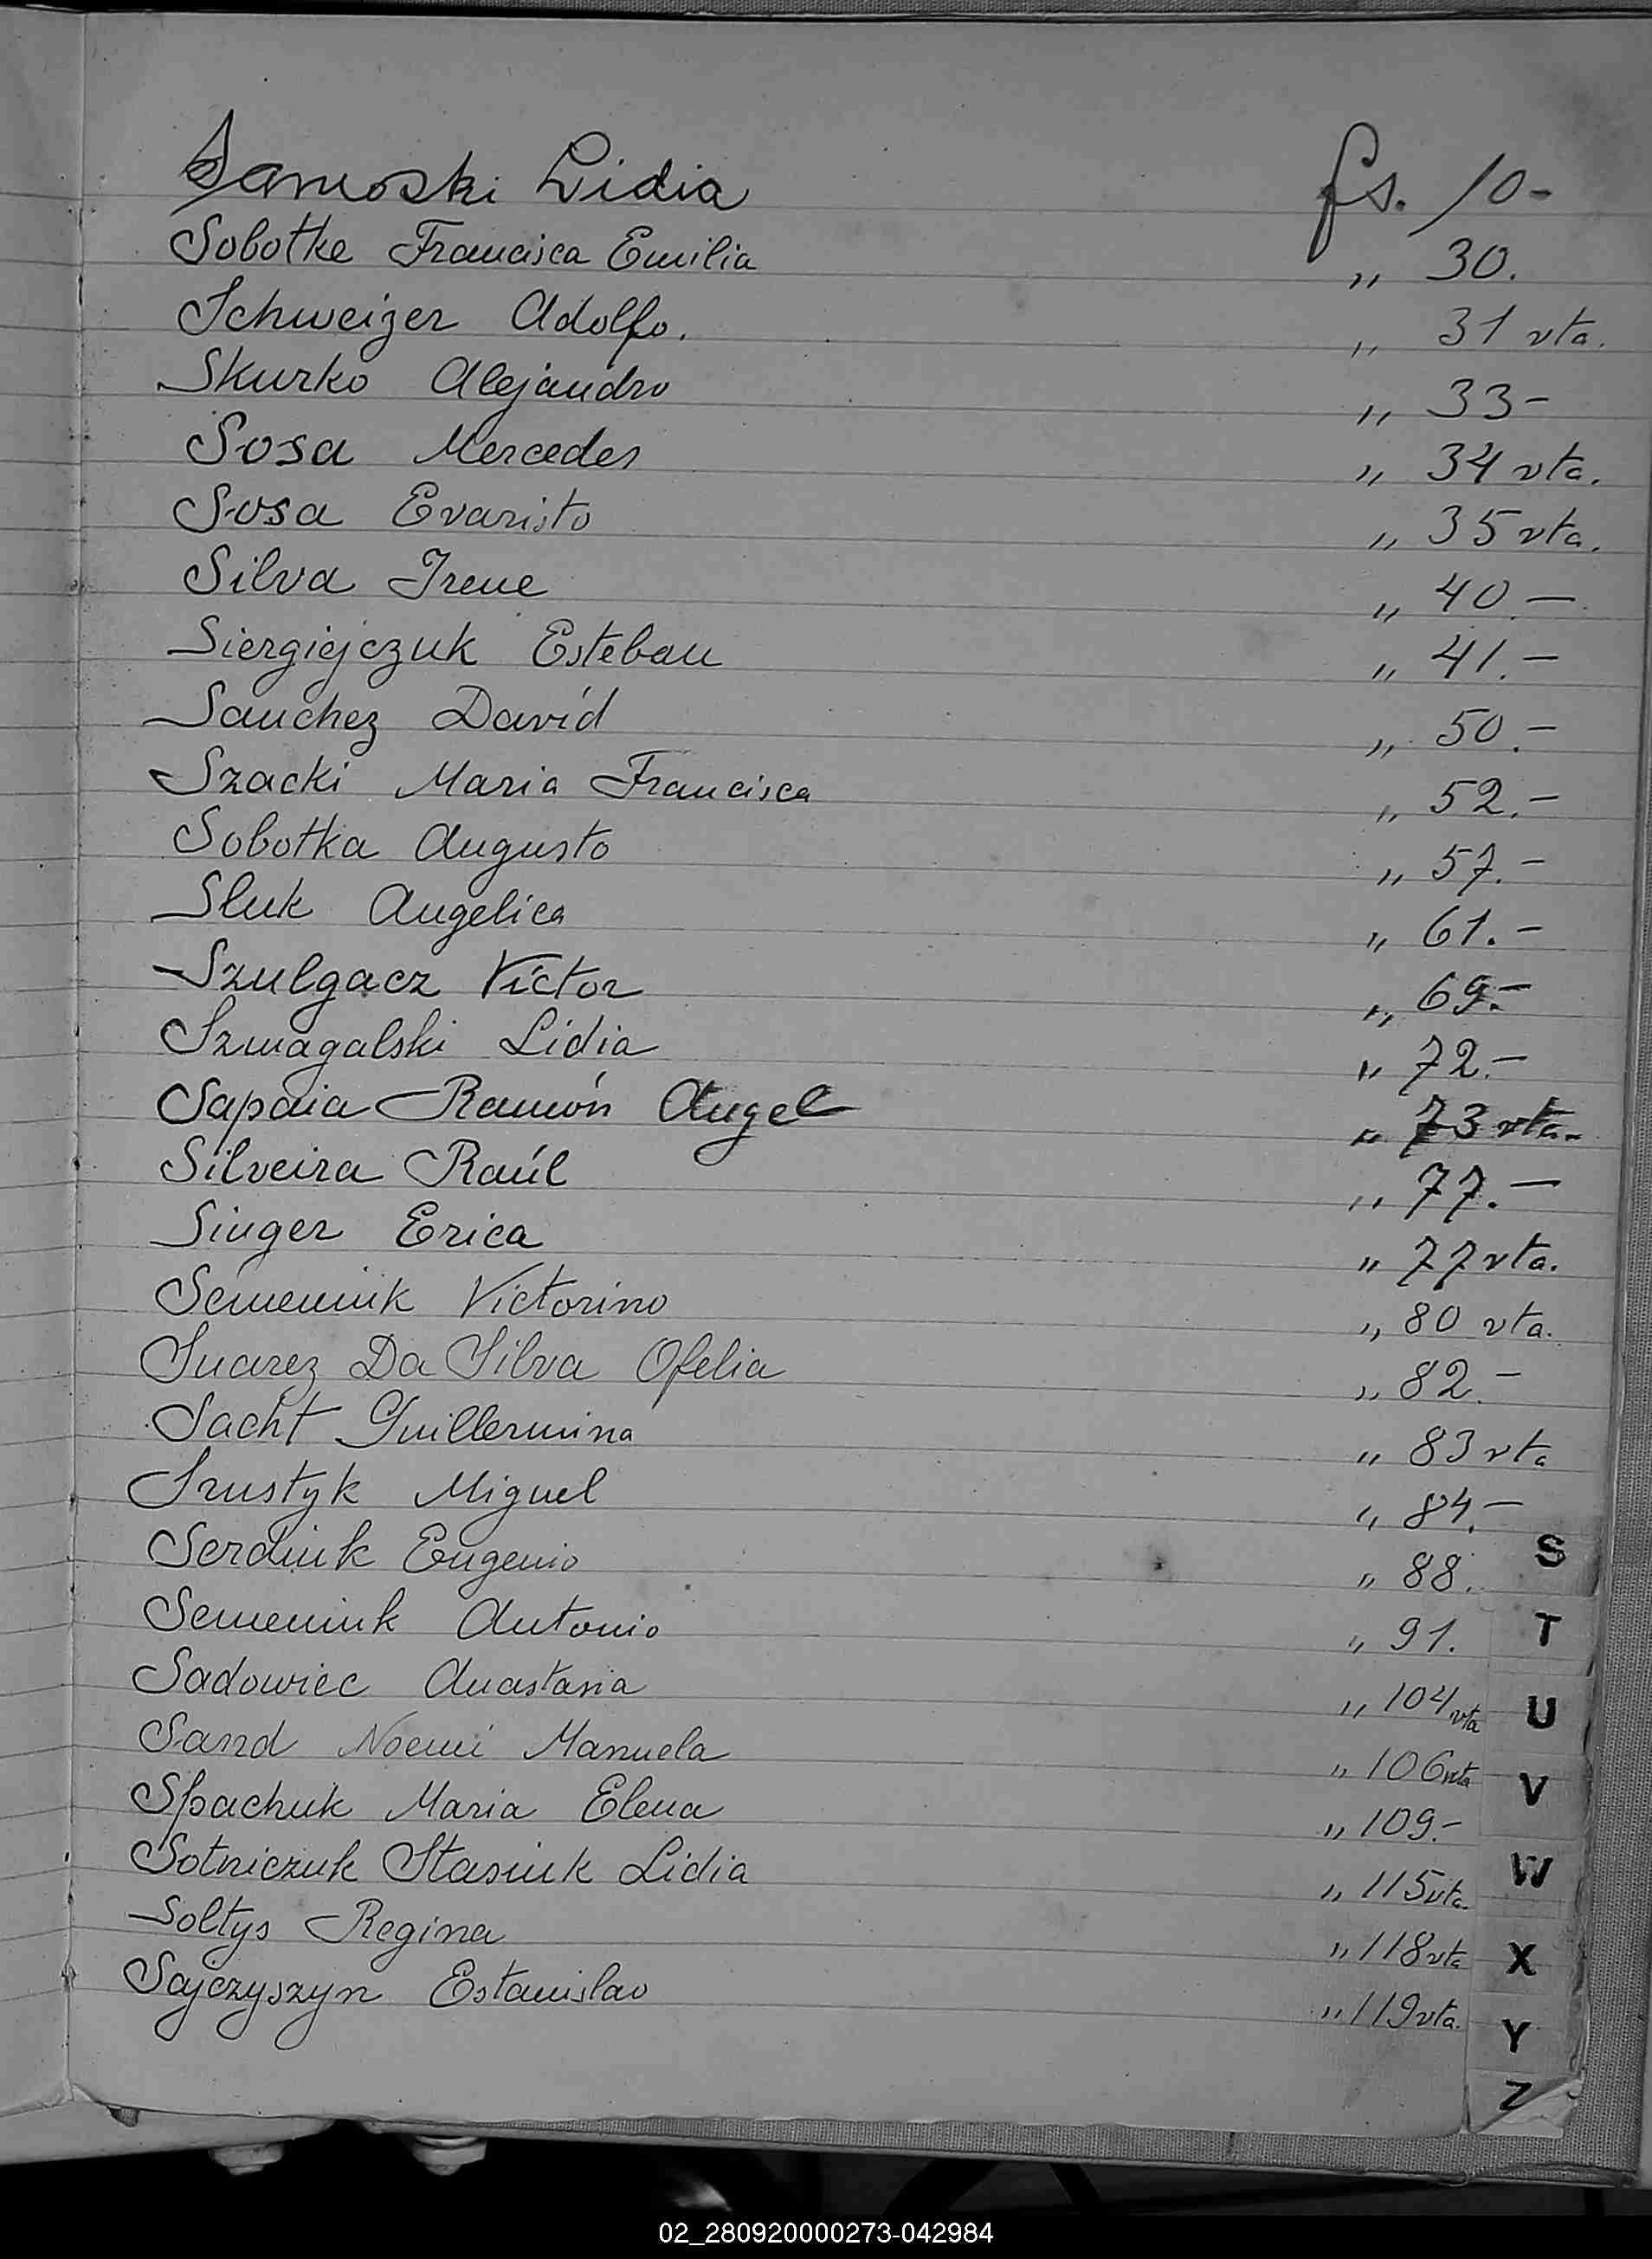 Samoski Lidia fs. 10-
Sobotke Francisca Emilia " 30.
Schweizer Adolfo. " 31 vta.
Skurko Alejandro " 33-
Sosa Mercedes " 34 vta.
Sosa Evaristo " 35 vta.
Silva Irene " 40.-
Siergiejczuk Esteban " 41.-
Sanchez David " 50.-
Szacki Maria Francisca " 52.-
Sobotka Augusto " 57.-
Sluk Angelica " 61.-
Szulgacz Victor " 69.-
Szmagalski Lidia " 72.-
Sapaia Ramón Angel " 73 vta.-
Silveira Raúl " 77.-
Singer Erica " 77 vta.
Semeniuk Victorino " 80 vta.
Suarez Da Silva Ofelia " 82.-
Sacht Guillermina " 83 vta
Szustyk Miguel " 84.-
Serdiuk Eugenio " 88.
Semeniuk Antonio " 91.
Sadowiec Anastasia " 104 vta
Sand Noemí Manuela " 106 vta
Spachuk Maria Elena " 109.-
Sotniczuk Stasiuk Lidia " 115 vta.
Soltys Regina " 118 vta
Sajczyszyn Estanislao " 119 vta.
S
T
U
V
W
X
Y
Z
02_280920000273-042984